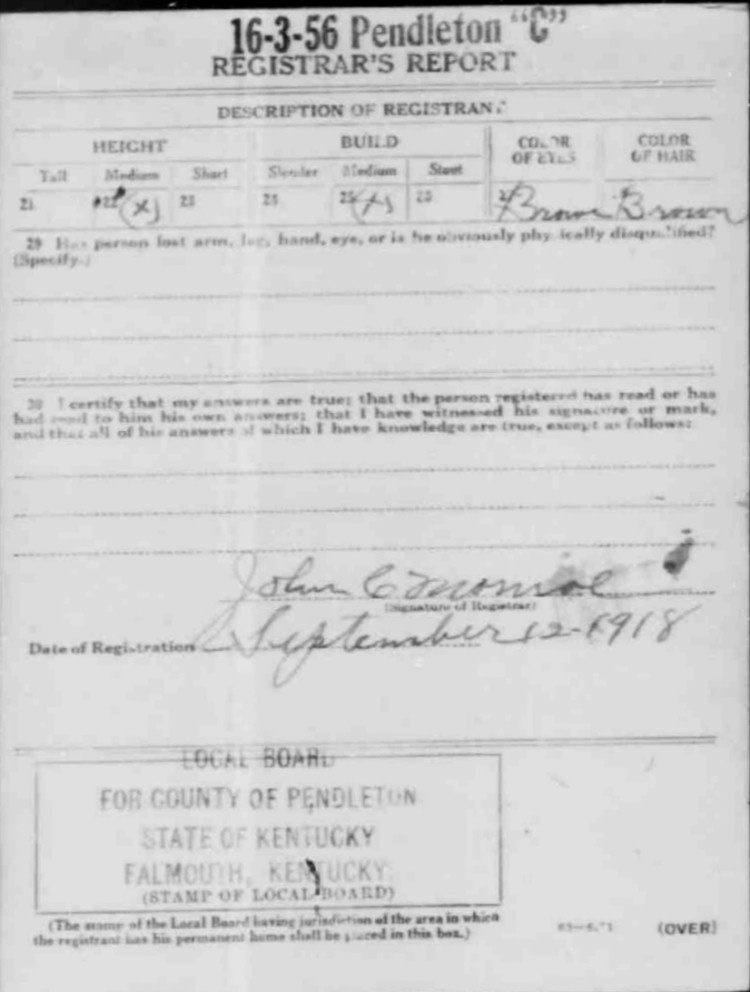 16-3-56 Pendleton "C"
REGISTRAR'S REPORT
DESCRIPTION OF REGISTRANT
HEIGHT BUILD COLOR OF EYES COLOR OF HAIR
Tall Medium Short Slender Medium Stout
21 22 (X) 23 24 25 (X) 26 27 Brown Brown
29 Has person lost arm, leg, hand, eye, or is he obviously physically disqualified?
(Specify.)
30 I certify that my answers are true; that the person registered has read or has
had read to him his own answers; that I have witnessed his signature or mark,
and that all of his answers of which I have knowledge are true, except as follows:
John C Monroe
(Signature of Registrar)
Date of Registration September 12-1918
LOCAL BOARD
FOR COUNTY OF PENDLETON
STATE OF KENTUCKY
FALMOUTH, KENTUCKY.
(STAMP OF LOCAL BOARD)
(The stamp of the Local Board having jurisdiction of the area in which
the registrant has his permanent home shall be placed in this box.)
(OVER)